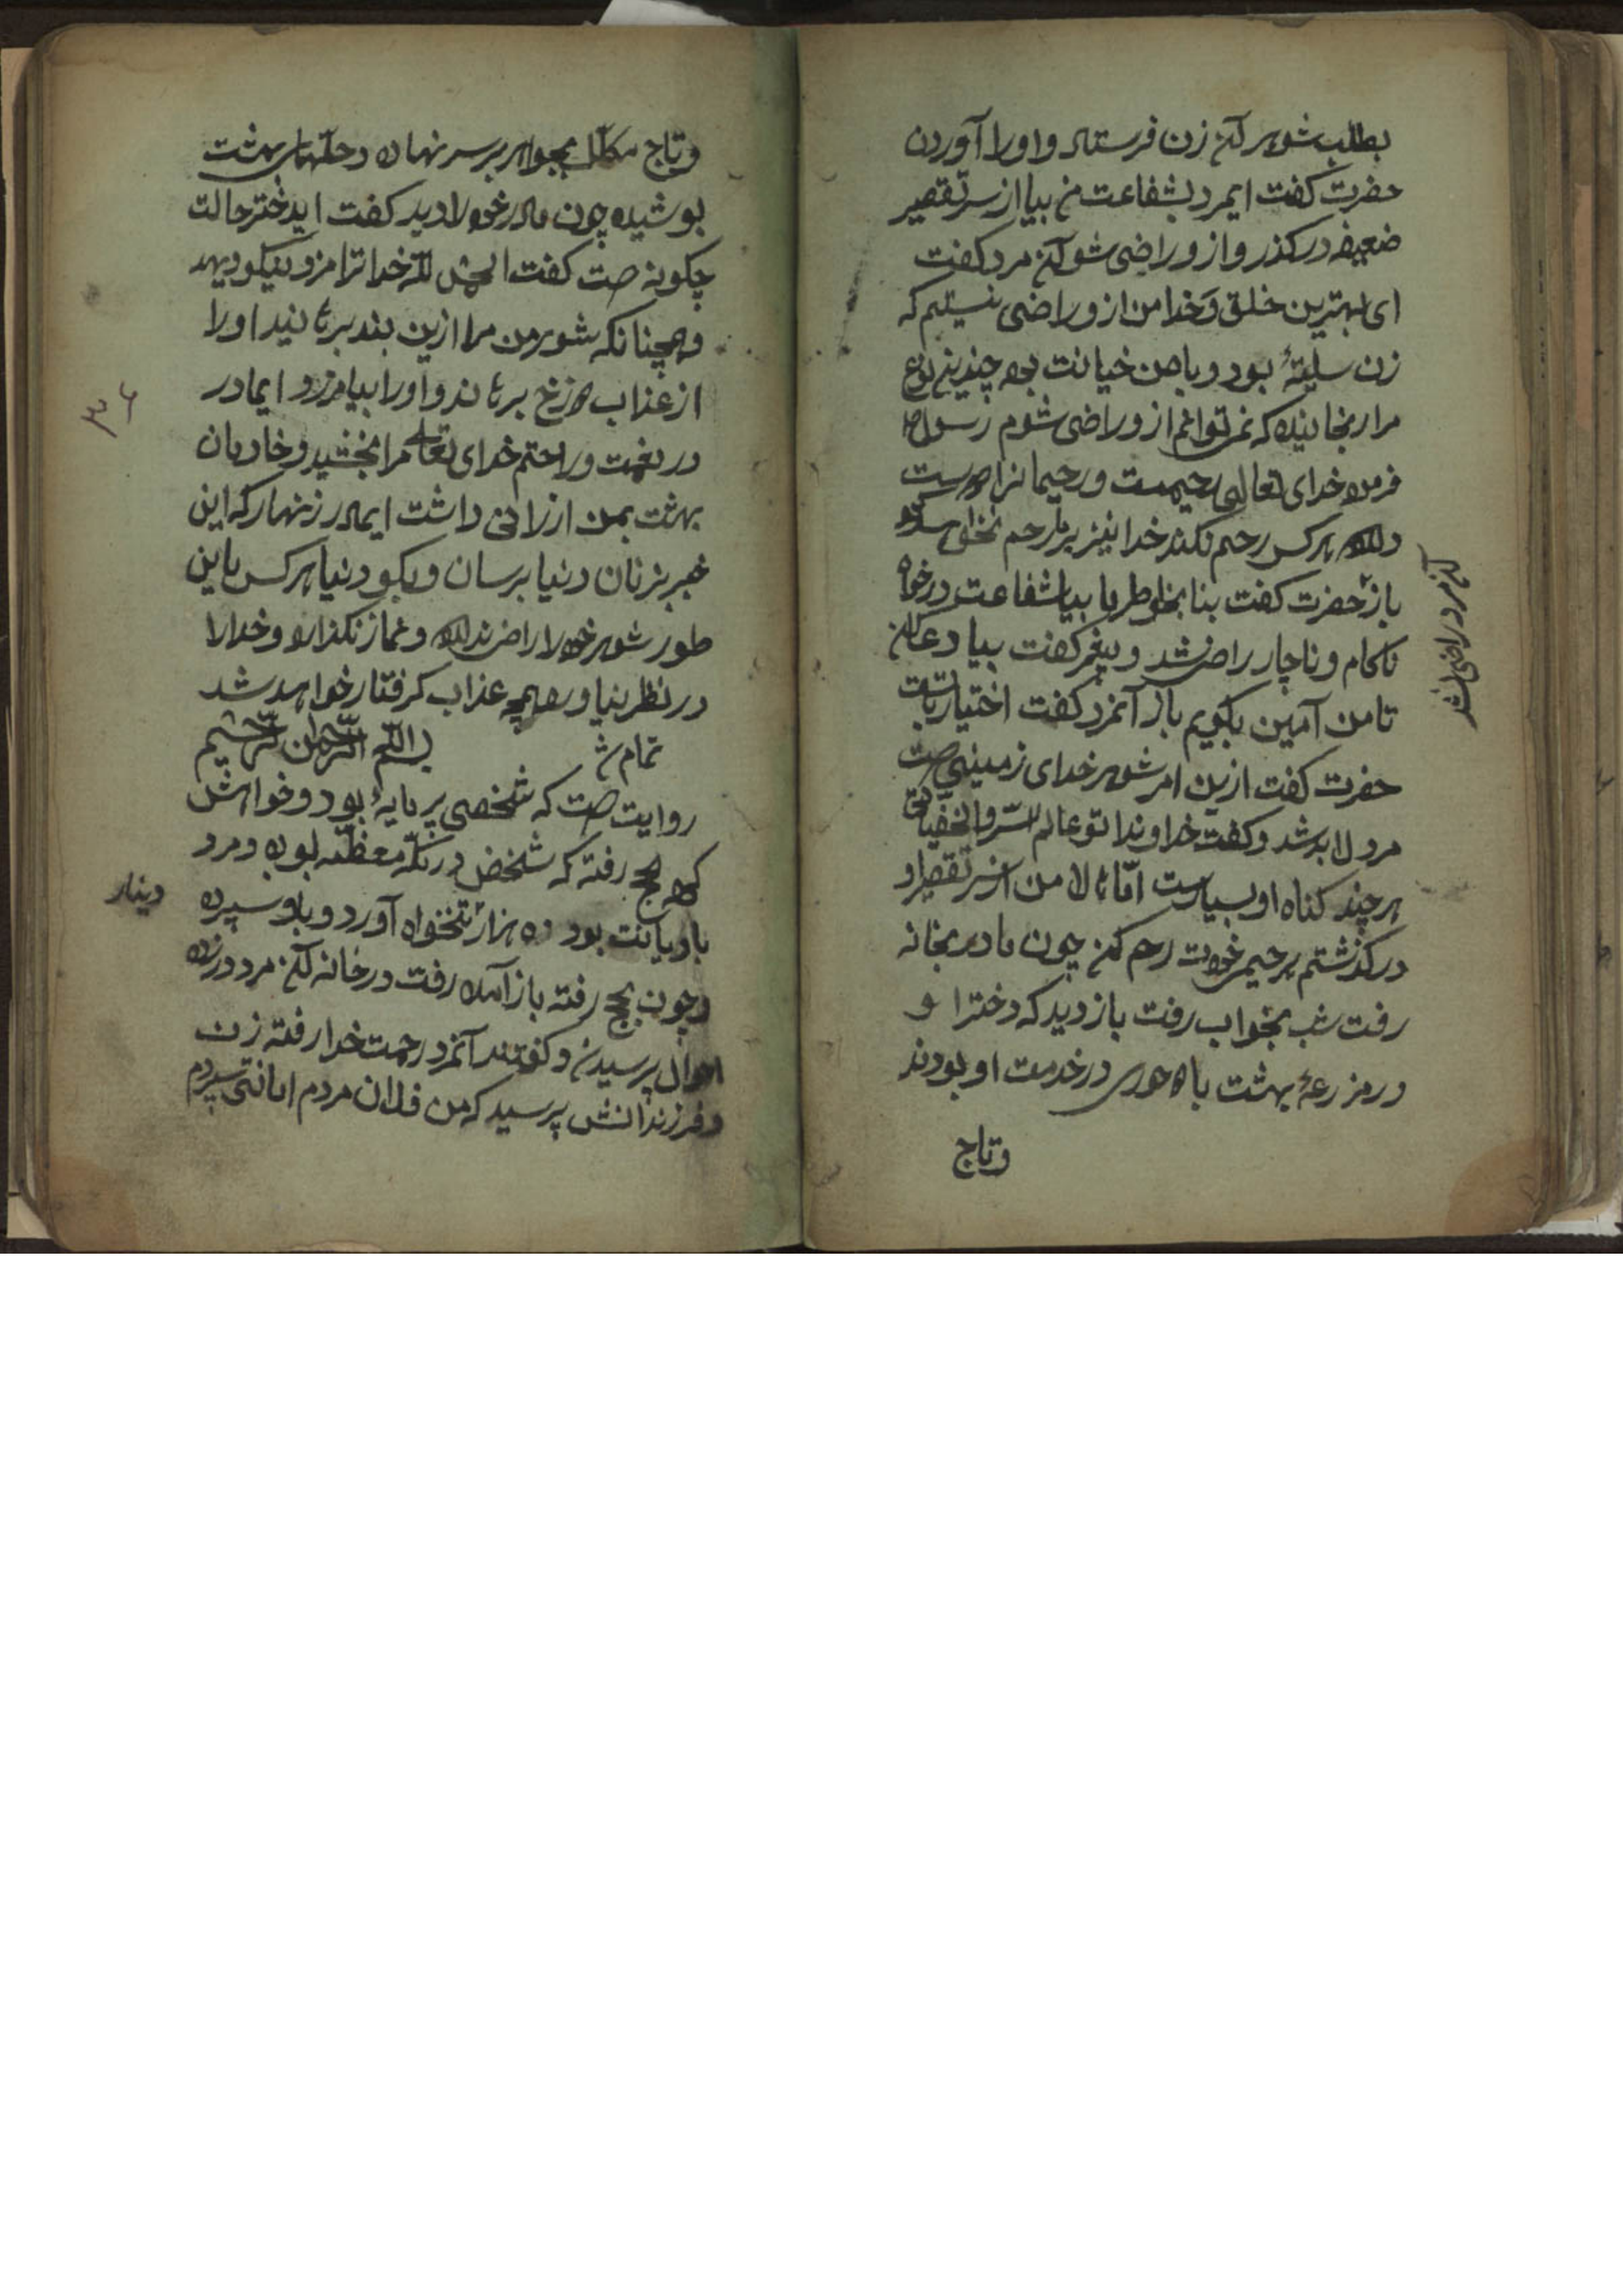 بطلب شوهر آن زن فرستاد و اورا آوردن
حضرت کفت ایمرد بشفاعت من بیا از سر تقصیر
ضعیفه درکذر و ازو راضی شو آن مرد کفت
ای بهترین خلق وخدا من ازو راضی نیستم که
زن سلیته بود و با من خیانت بود چندین نوع
مرا رنجانیده که نمی توانم ازو راضی شوم رسول
فرمود خدای تعالی رحیمست و رحیمانرا
هرکس رحم نکند خدا نیز برو رحم نخواهد
باز حضرت کفت بنا بخاطر ما بیا شفاعت درخواه
ناکام و ناچار راضی شد و پیغمبر کفت بیا دعا کن
آن مرد راضی نشد
تا من آمین بکویم باز آنمرد کفت اختیار باتست
حضرت کفت ازین امر شوهر خدای زمینی است
مرد لابد شد و کفت خداوندا تو عالم السر والخفیاتی
هرچند کناه او بسیارست امّا حالا من از سر تقصیر او
درکذشتم بر حیمی خودت رحم کن چون مادر بخانه
رفت شب بخواب رفت باز دید که دختر او
در مزرعهٔ بهشت با حوری در خدمت او بودند
وتاج
وتاج مکلّل بجواهر بر سر نهاده و حلّهای بهشت
پوشیده چون مادر خود را دید کفت ایدختر حالت
چکونه است کفت الحمد لله خدا ترا مزد نیکو دهد
و همچنانکه شوهر من مرا ازین بند برهانید او را
از عذاب دوزخ برهاند و اورا بیامرزد ایمادر
۳۶
در نعمت و راحتم خدای تعالی مرا بخشید و خادمان
بهشت بمن ارزانی داشت ایمادر زنهار که این
خبر بزنان دنیا برسان و بکو در دنیا هرکس باین
طور شوهر خود را راضی ندارد و نماز نکذارد و خدارا
در نظر نیاورد بهمچه عذاب کرفتار خواهد شد
تمام شد بسم الله الرحمن الرحیم
روایت است که شخصی پر مایهٔ بود و خواهش
کرد بحج رفته که شخصی در مکّه معظمه بوده و مرد
بادیانت بود ده هزار تنخواه آورد و باو سپرده
دینار
و چون بحج رفته باز آمده رفت درخانه آن مرد در زده
احوال پرسیدن و کفتند آنمرد رحمت خدا رفته زن
و فرزندانش پرسید که من فلان مردم امانتی سپردم